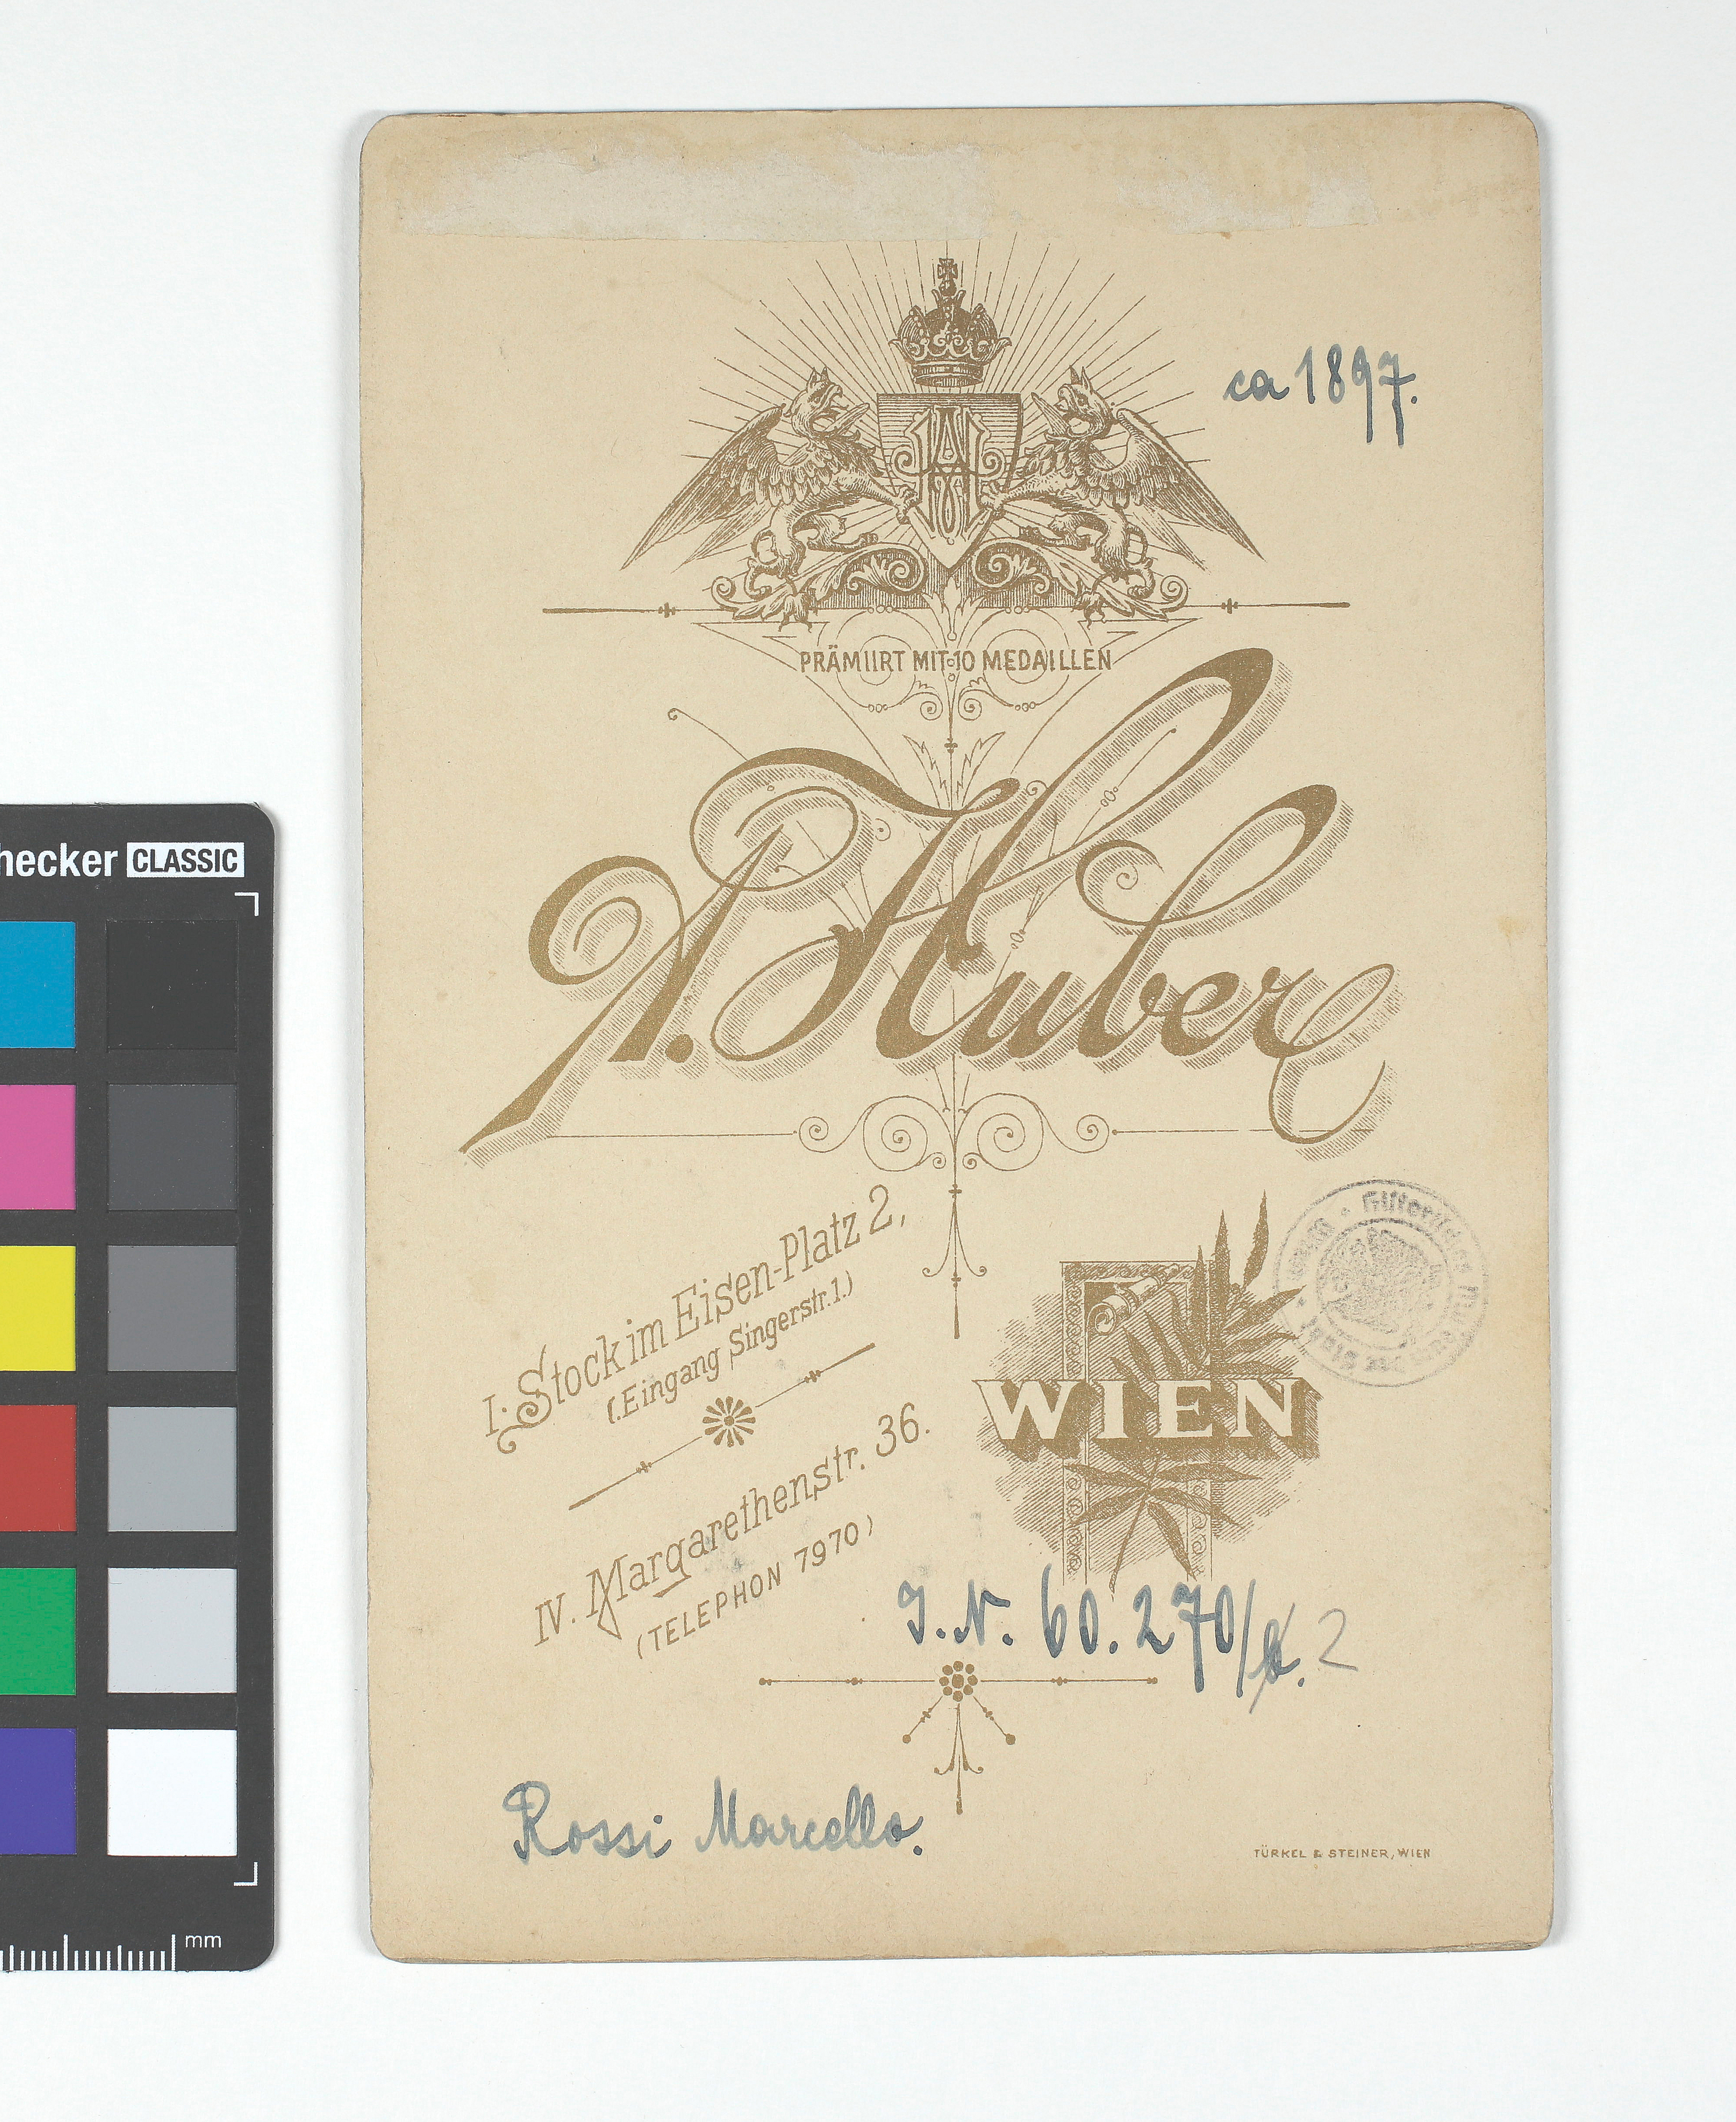 ca 1897.
AH
PRÄMIIRT MIT 10 MEDAILLEN
A. Huber
I. Stock im Eisen-Platz 2,
(Eingang Singerstr. 1.)
IV. Margarethenstr. 36.
(TELEPHON 7970)
WIEN
Historisches Museum der Stadt Wien
J.N. 60.270/ 2
Rossi Marcello.
TÜRKEL & STEINER, WIEN
hecker CLASSIC
mm